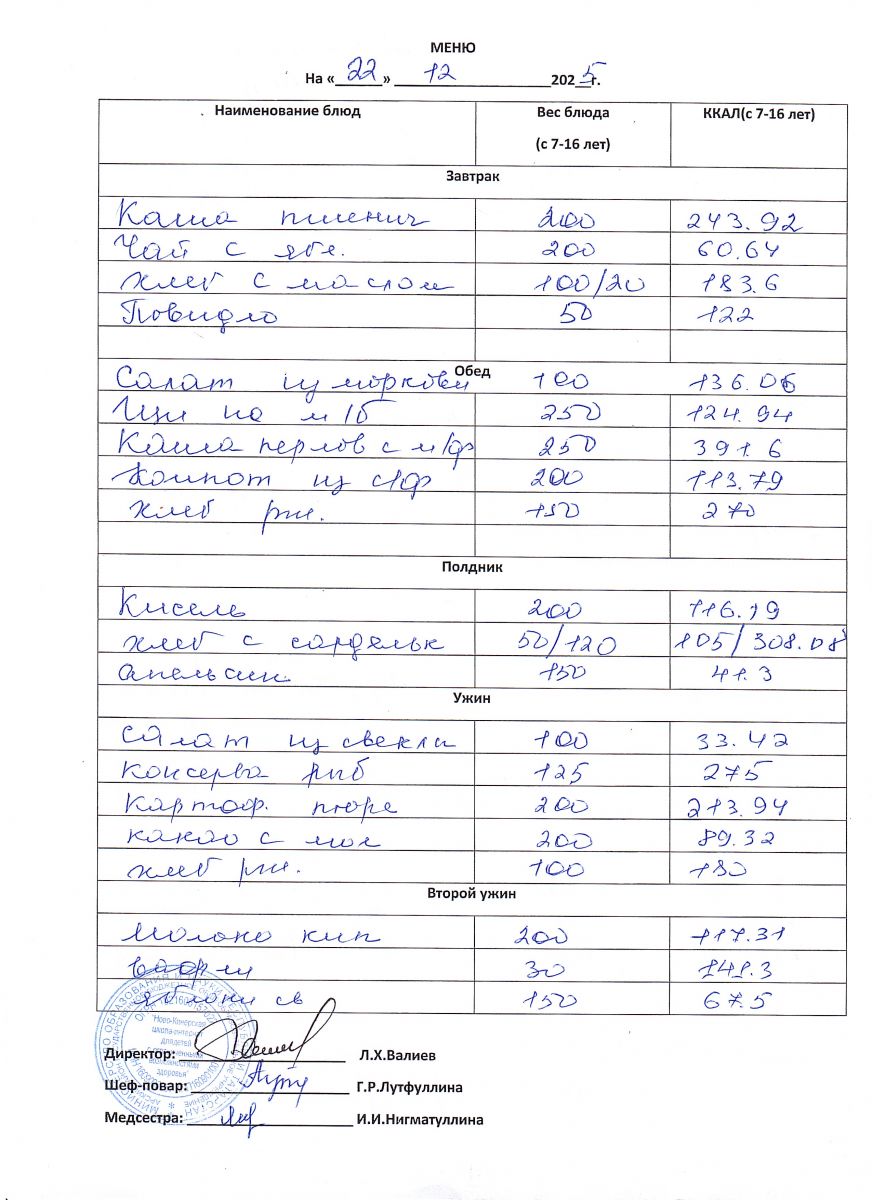 МЕНЮ
На «22» 12 2025г.
Наименование блюд Вес блюда (с 7-16 лет) ККАЛ(с 7-16 лет)
Завтрак
Каша пшенич 200 243.92
Чай с ябл. 200 60.64
хлеб с маслом 100/20 183.6
Повидло 50 122
Обед
Салат из моркови 100 136.06
Щи на м/б 250 124.94
Каша перлов с м/ф 250 391.6
Компот из с/ф 200 113.79
хлеб рж. 150 270
Полдник
Кисель 200 116.19
хлеб с сардельк 50/120 105/308.08
апельсин 150 41.3
Ужин
Салат из свеклы 100 33.42
консерва рыб 125 275
картоф. пюре 200 213.94
какао с мол 200 89.32
хлеб рж. 100 180
Второй ужин
молоко кип 200 117.31
вафли 30 141.3
яблоки св 150 67.5
Директор: Л.Х.Валиев
Шеф-повар: Г.Р.Лутфуллина
Медсестра: И.И.Нигматуллина